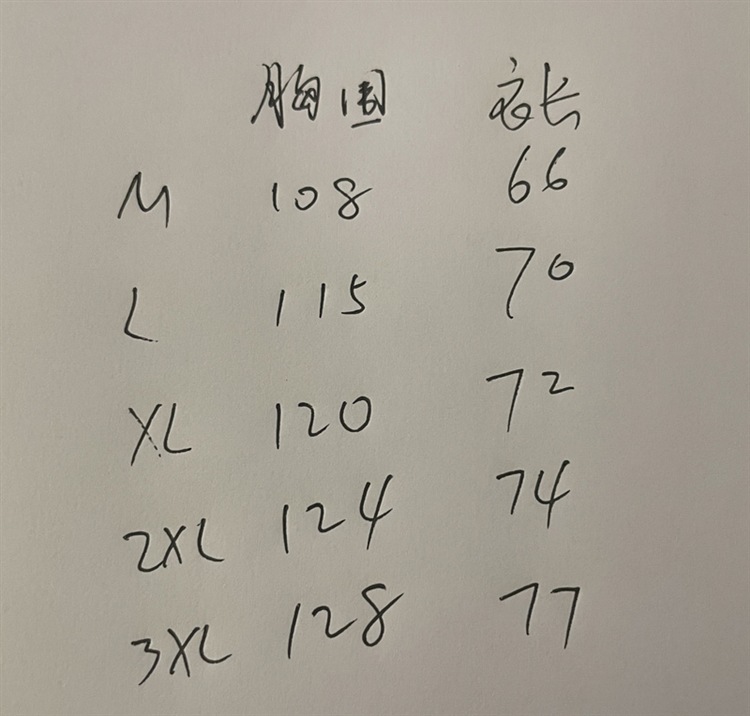 胸围 衣长
M 108 66
L 115 70
XL 120 72
2XL 124 74
3XL 128 77